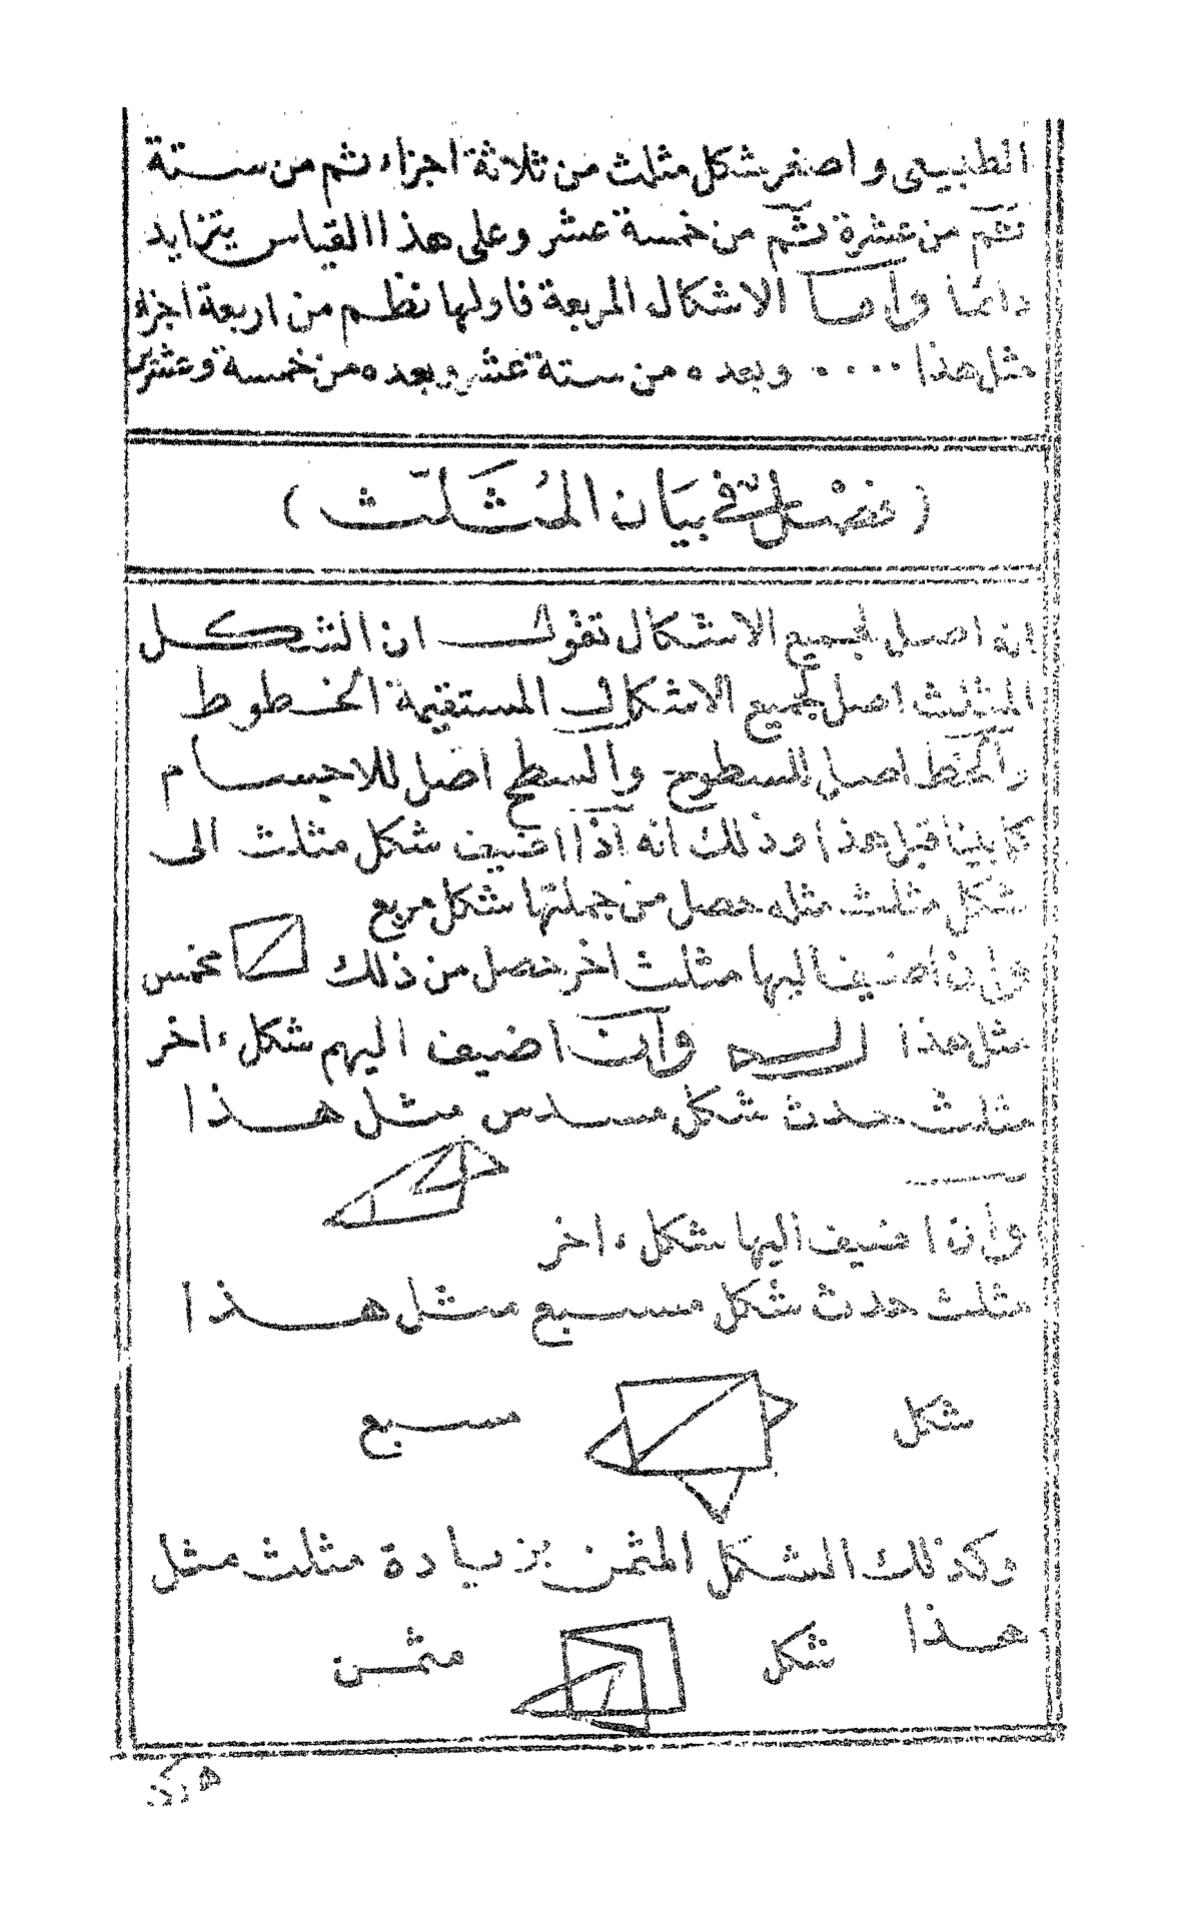 الطبيعى واصغر شكل مثلث من ثلاثة اجزاء ثم من ستة
ثم من عشرة ثم من خمسة عشر وعلى هذا القياس يتزايد
دائما واما الاشكال المربعة فاولها نظم من اربعة اجزاء
مثل هذا .... وبعده من ستة عشر وبعده من خمسة وعشرين
(فصل فى بيان المثلث)
انه اصل لجميع الاشكال نقول ان الشكل
المثلث اصل لجميع الاشكال المستقيمة الخطوط
والخط اصل للسطوح والسطح اصل للاجسام
كما بينا قبل هذا وذلك انه اذا اضيف شكل مثلث الى
شكل مثلث مثله حصل من جملتها شكل مربع
وان اضيف اليها مثلث اخر حصل من ذلك مخمس
مثل هذا وان اضيف اليهم شكل ء اخر
مثلث حدث شكل مسدس مثل هذا
وان اضيف اليها شكل ء اخر
مثلث حدث شكل مسبع مثل هذا
شكل مسبع
وكذلك الشكل المثمن بزيادة مثلث مثل
هذا شكل مثمن